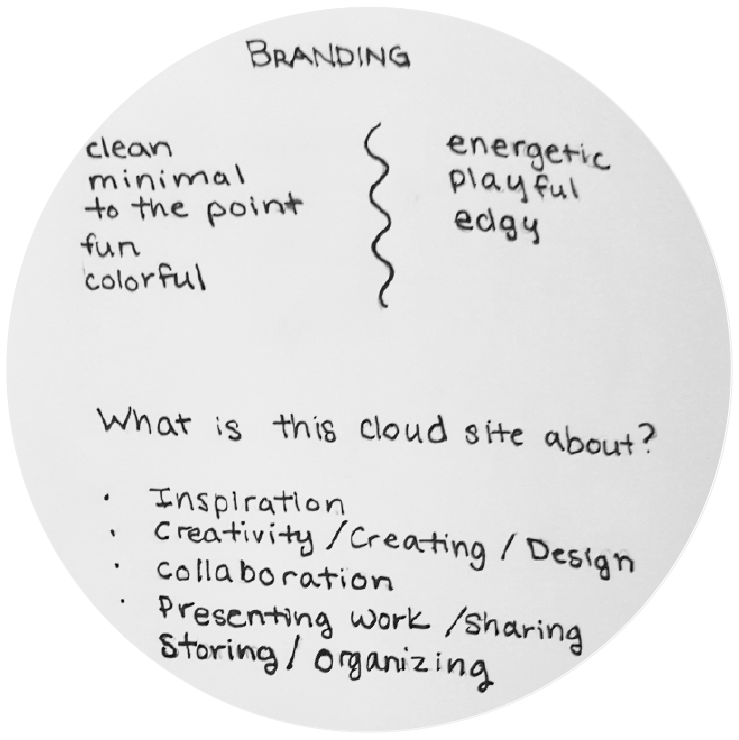 BRANDING
clean
minimal
to the point
fun
colorful
energetic
playful
edgy
What is this cloud site about?
· Inspiration
· Creativity / Creating / Design
· collaboration
· Presenting work / Sharing
Storing / organizing